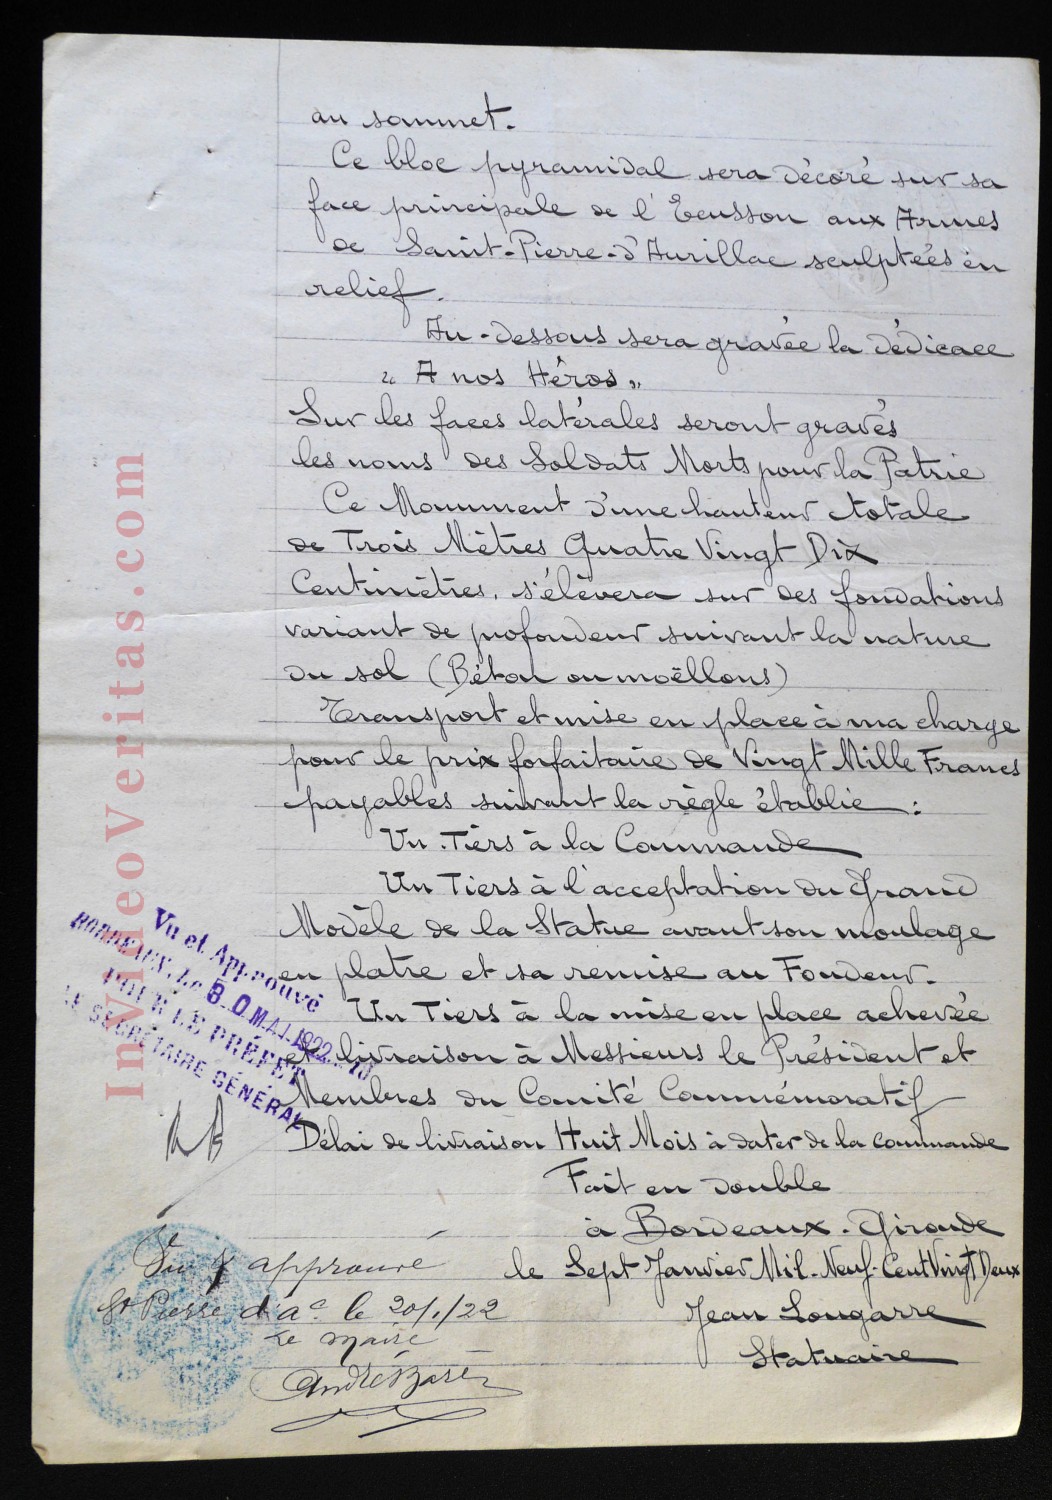 au sommet.
Ce bloc pyramidal sera décoré sur sa
face principale de l'Ecusson aux Armes
de Saint-Pierre-d'Aurillac sculptées en
relief.
Au-dessous sera gravée la dédicace
" A nos Héros "
Sur les faces latérales seront gravés
les noms des Soldats Morts pour la Patrie
Ce Monument d'une hauteur totale
de Trois Mètres Quatre Vingt Dix
Centimètres, s'élèvera sur des fondations
variant de profondeur suivant la nature
du sol (Béton ou moëllons)
Transport et mise en place à ma charge
pour le prix forfaitaire de Vingt Mille Francs
payables suivant la règle établie :
Un Tiers à la Commande
Un Tiers à l'acceptation du Grand
Modèle de la Statue avant son moulage
en platre et sa remise au Fondeur.
Un Tiers à la mise en place achevée
et livraison à Messieurs le Président et
Membres du Comité Commémoratif
Délai de livraison Huit Mois à dater de la commande
Fait en double
à Bordeaux. Gironde
le Sept Janvier Mil. Neuf. Cent Vingt Deux
Jean Lougarre
Statuaire
Vu et Approuvé
BORDEAUX, Le 30 MAI 1922
POUR LE PRÉFET
LE SECRÉTAIRE GÉNÉRAL
Vu & approuvé
St Pierre d'Ac. le 20/1/22
Le Maire
InVideoVeritas.com